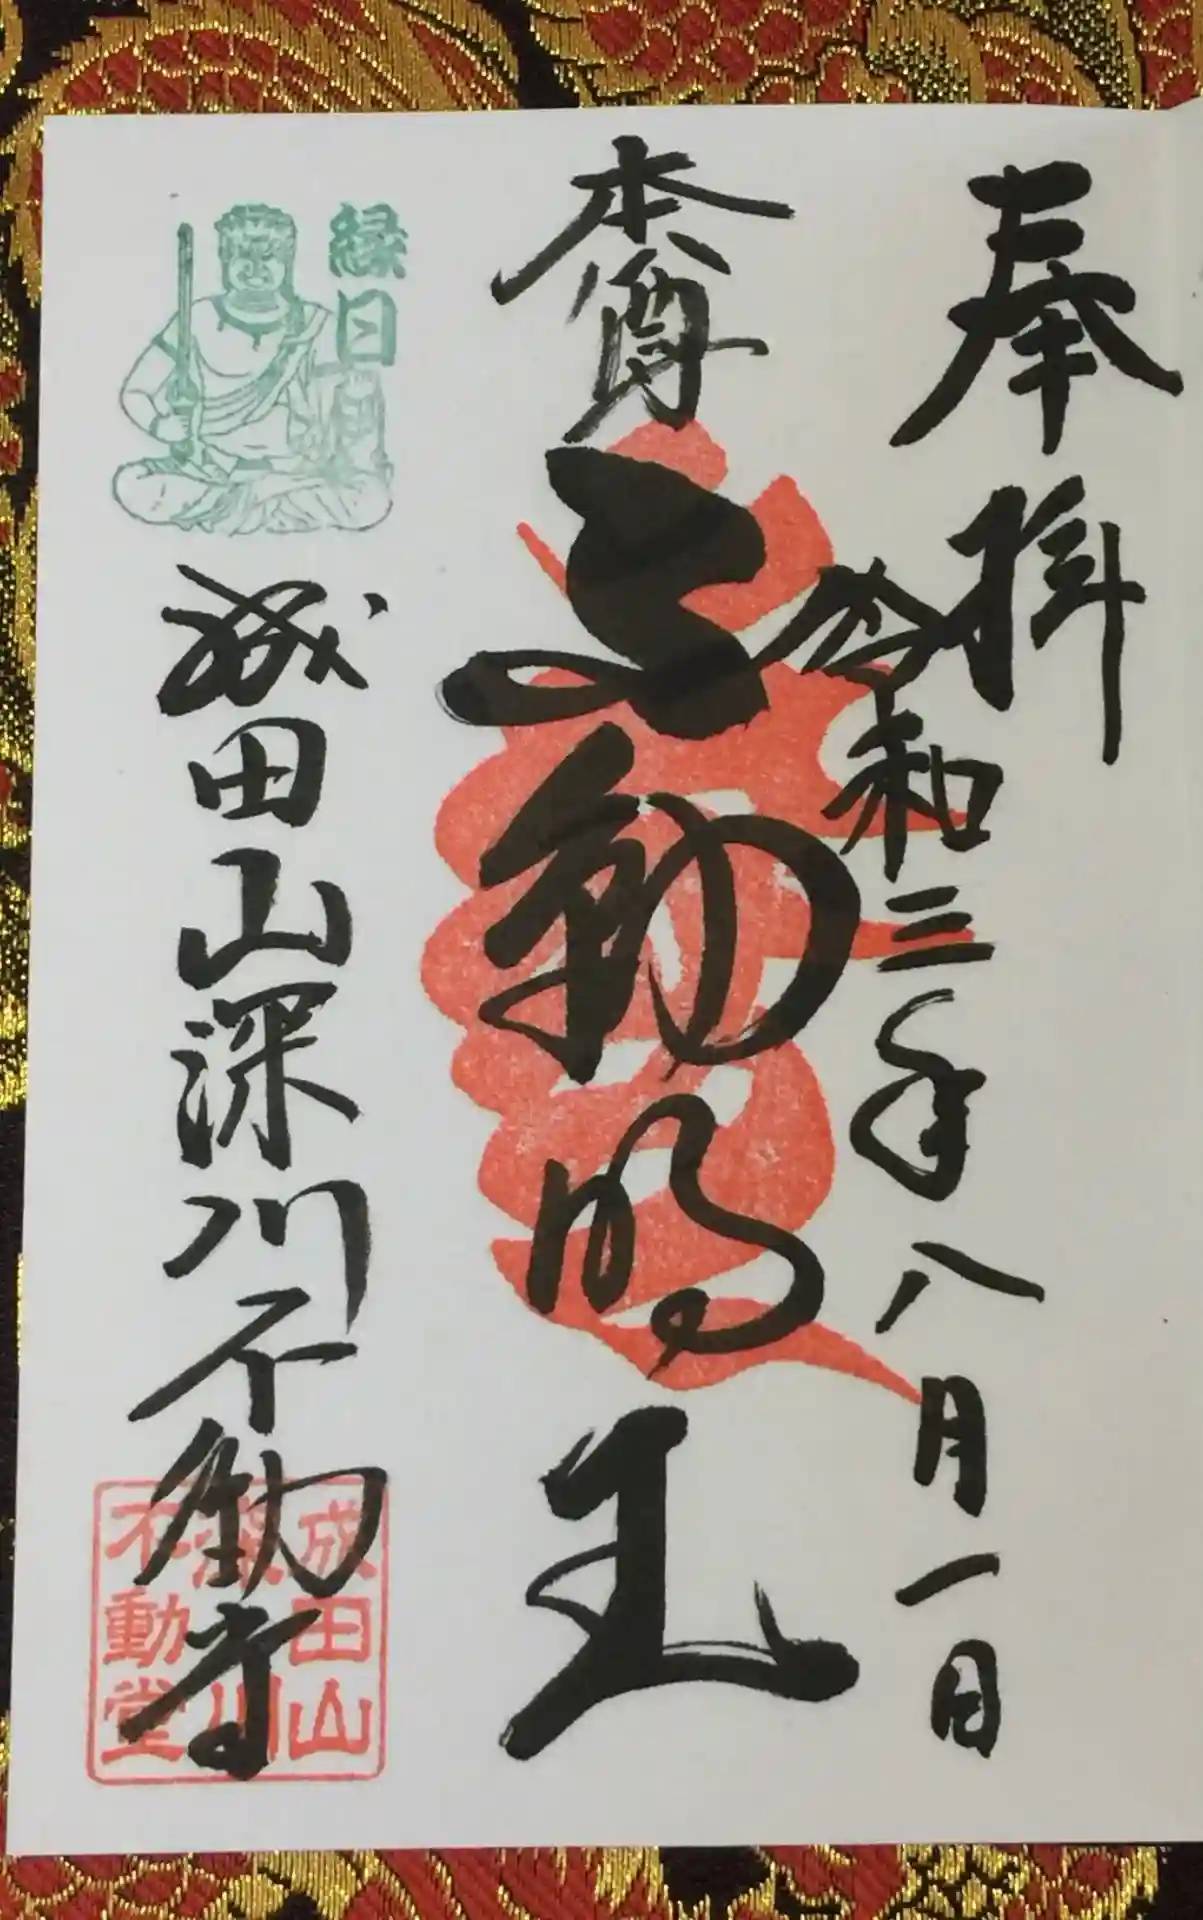 奉拝
令和三年八月一日
本尊
不動明王
縁日
成田山深川不動寺
成田山
深川
不動堂